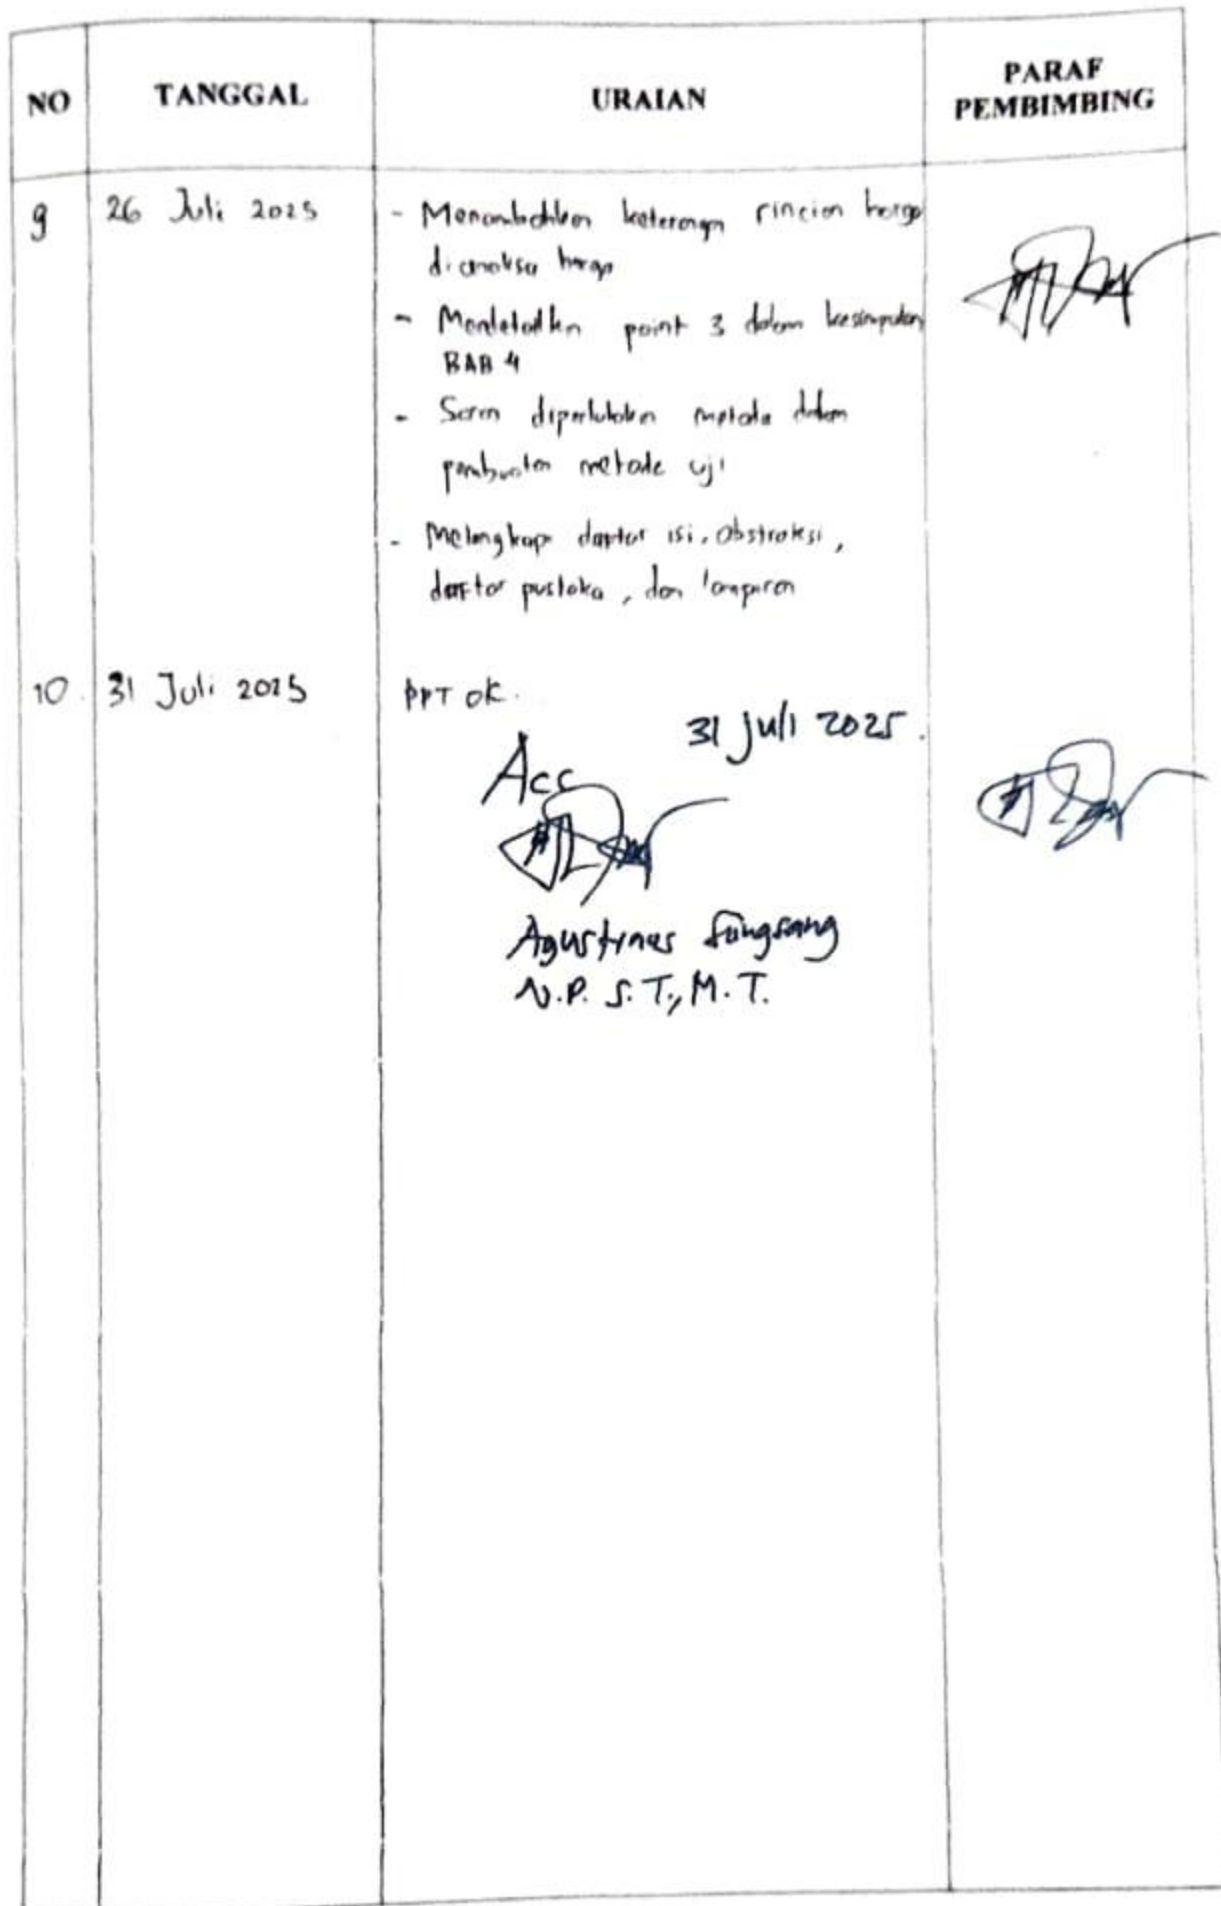 NO TANGGAL URAIAN PARAF PEMBIMBING
9 26 Juli 2025 - Menambahkan keterangan rincian harga
harga
- Mendetailkan point 3 dalam kesimpulan
BAB 4
- Saran diperlukan metode dalam
pembuatan metode uji
- Melengkapi daftar isi, abstraksi,
daftar pustaka, dan lampiran
10. 31 Juli 2025 PPT OK.
31 Juli 2025.
Acc
Agustinus
N.P. S.T., M.T.